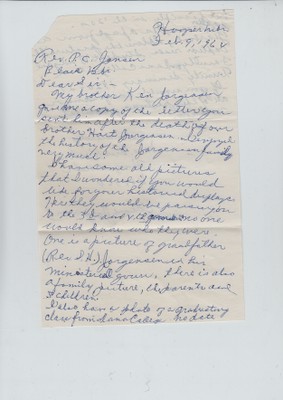 Hooper Neb.
Feb. 9, 1962
Rev. P. C. Jensen
Blair Neb.
Dear Sir:-
My brother Ken Jorgensen
gave me a copy of the letter you
sent him after the death of our
brother Hart Jorgensen. I enjoyed
the history of the Jorgensen family
very much.
I have some old pictures
that I wondered if you would
like for your historical displays.
Here they would be passing on
to the and no one
would know who they were.
One is a picture of grandfather
(Rev. S. H.) Jorgensen in his
Ministerial gown, there is also
a family picture, the parents and
7 children.
I also have a photo of a graduating
class from Dana College no date